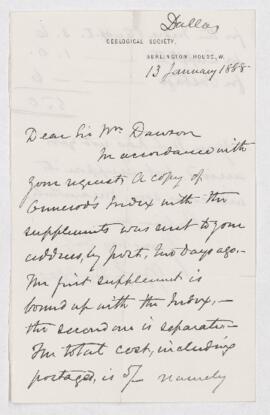 Dallas
GEOLOGICAL SOCIETY,
BURLINGTON HOUSE, W.
13 January 1888
Dear Sir Wm Dawson
In accordance with
your request a copy of
Ormerod's Index with the
supplements was sent to your
address, by post, two days ago. –
The first supplement is
bound up with the Index, –
the second one is separate –
The total cost, including
postage, is 5/- namely